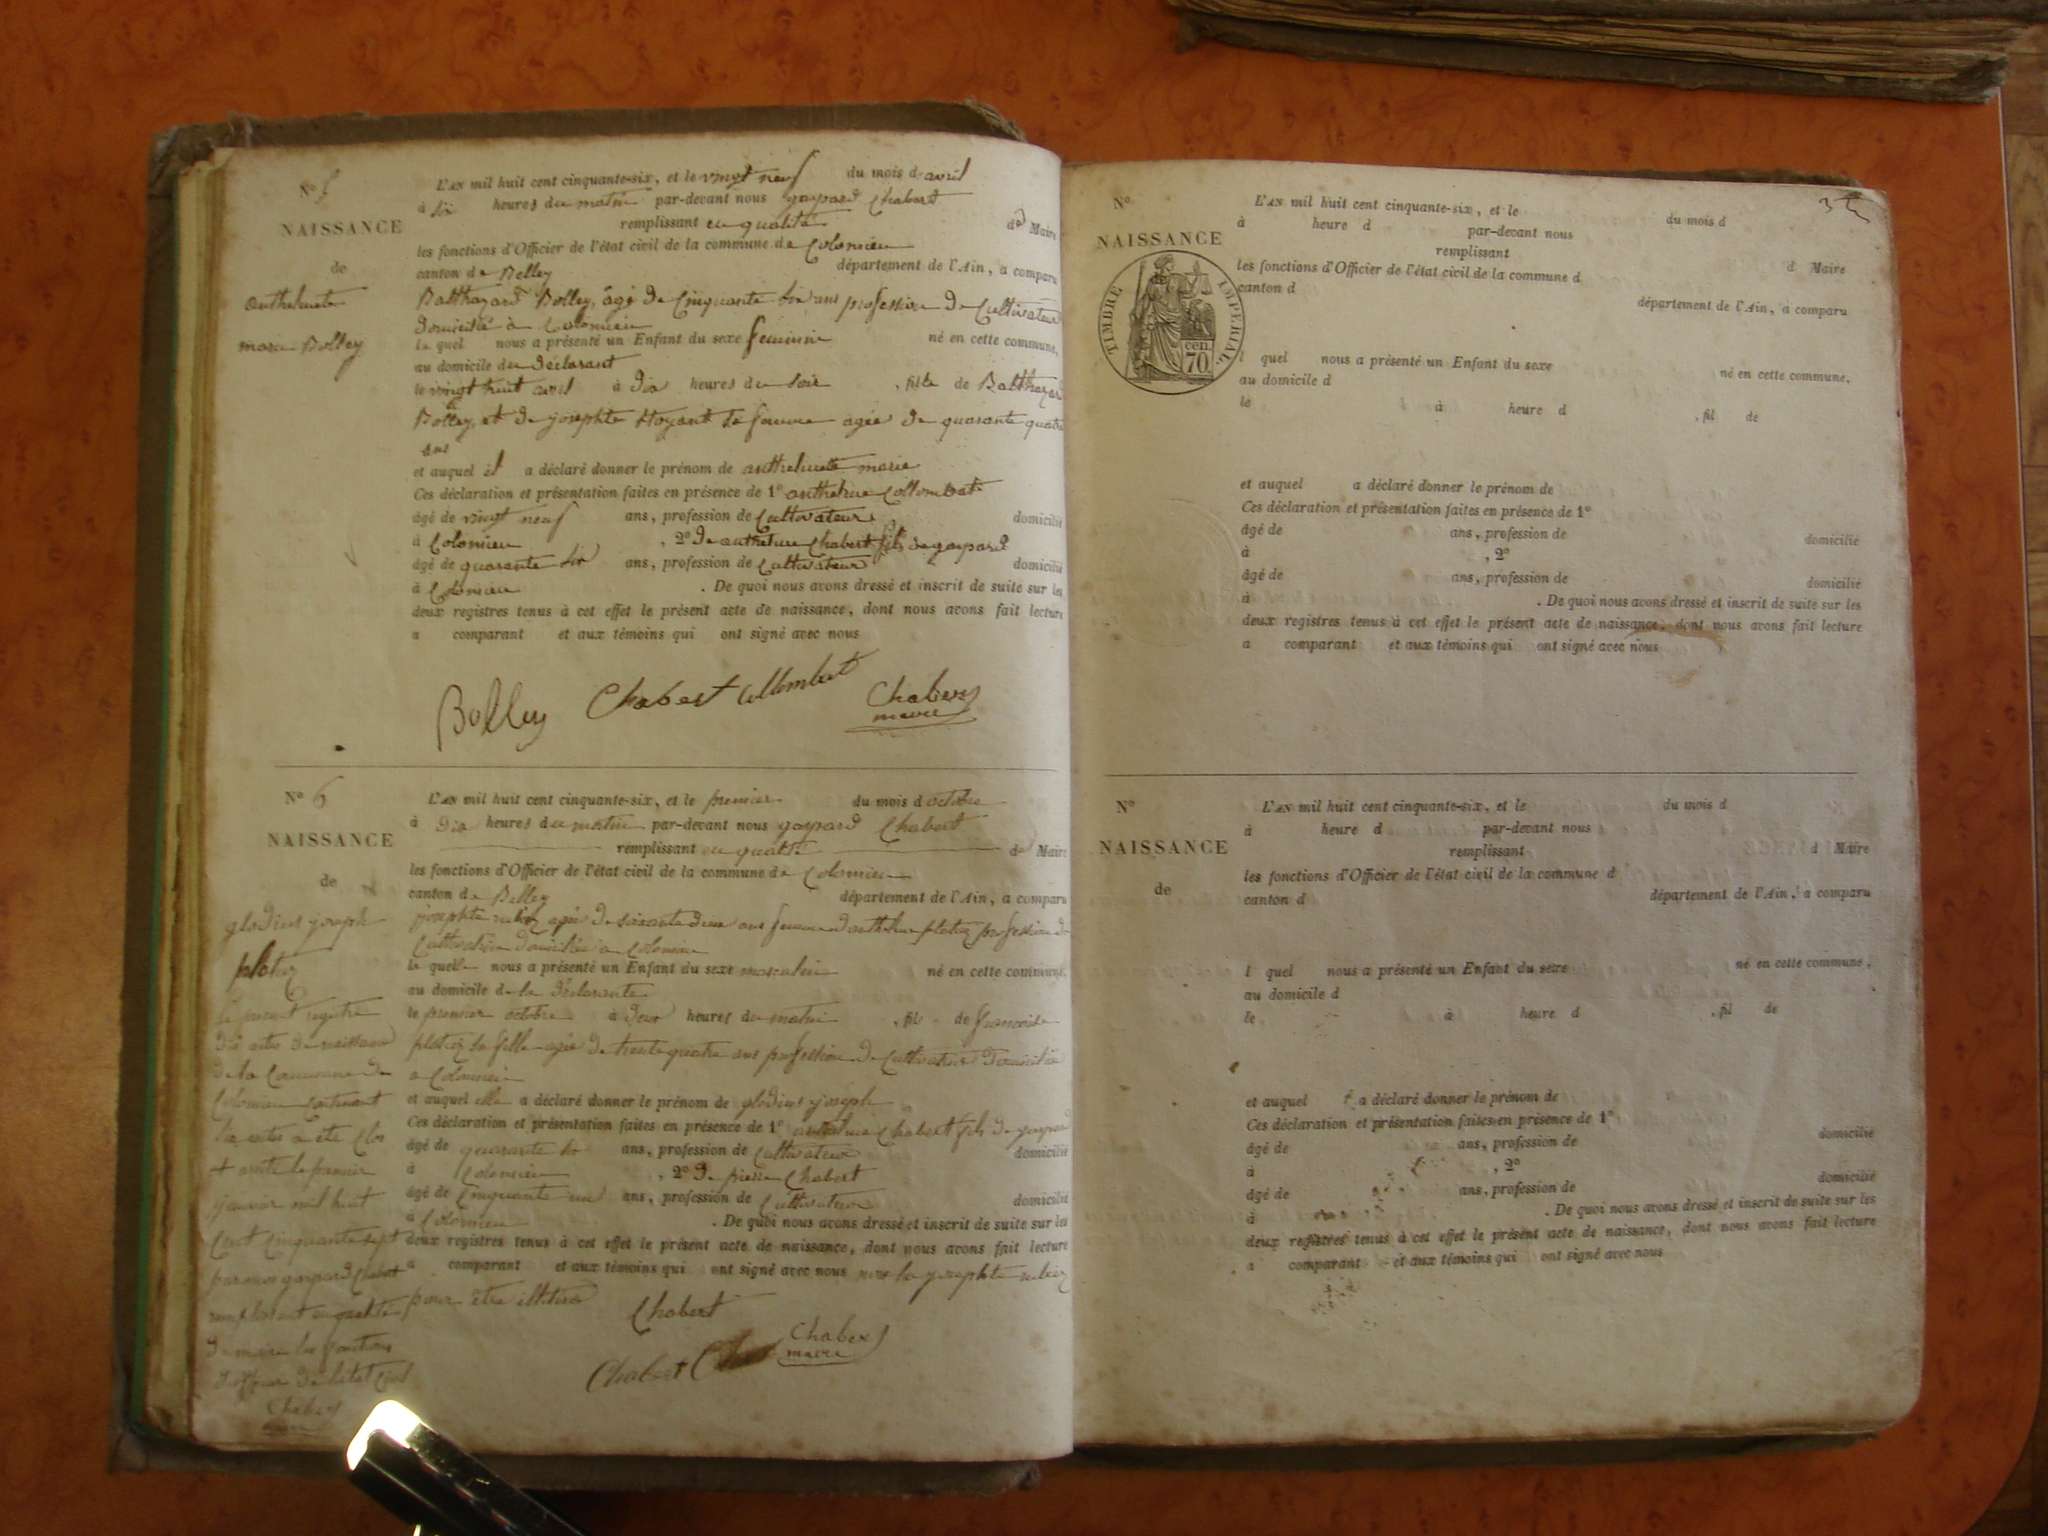 N° 5
NAISSANCE
de
anthelmete
marie Bolley
L'AN mil huit cent cinquante-six, et le vingt neuf du mois d avril
à six heures du matin par-devant nous gaspard Chabert
remplissant en qualité de Maire
les fonctions d'Officier de l'état civil de la commune de Colomieu
canton de Belley département de l'Ain, a comparu
Balthazard Bolley, âgé de Cinquante six ans profession de Cultivateur
domicilié à Colomieu
le quel nous a présenté un Enfant du sexe feminin né en cette commune,
au domicile du déclarant
le vingt huit avril à dix heures du soir, fille de Balthazard
Bolley, et de josephte Moyant sa femme agée de quarante quatre
ans
et auquel il a déclaré donner le prénom de anthelmete marie
Ces déclaration et présentation faites en présence de 1° anthelme Collombat
âgé de vingt neuf ans, profession de Cultivateur domicilié
à Colomieu, 2° de anthelme Chabert fils de gaspard
âgé de quarante six ans, profession de Cultivateur domicilié
à Colomieu. De quoi nous avons dressé et inscrit de suite sur les
deux registres tenus à cet effet le présent acte de naissance, dont nous avons fait lecture
a comparant et aux témoins qui ont signé avec nous
Bolley Chabert Collombat Chabert
maire
N° 6
NAISSANCE
de
glodius joseph
platin
le present registre
des actes de naissance
de la Commune de
Colomieu contenant
six actes a été clos
et arrété le premier
janvier mil huit
Cent Cinquante sept
par nous gaspard Chabert
remplissant en qualité
de maire les fonctions
d'officier de l'état civil
Chabert
maire
L'AN mil huit cent cinquante-six, et le premier du mois d octobre
à dix heures du matin par-devant nous gaspard Chabert
remplissant en qualité de Maire
les fonctions d'Officier de l'état civil de la commune de Colomieu
canton de Belley département de l'Ain, a comparu
josephte agée de soixante deux ans femme d'anthelme profession de
Cultivatrice domiciliée a Colomieu
la quelle nous a présenté un Enfant du sexe masculin né en cette commune,
au domicile de la déclarante
le premier octobre à deux heures du matin, fil de francoise
sa fille agée de trente quatre ans profession de Cultivatrice domiciliée
a Colomieu
et auquel elle a déclaré donner le prénom de glodius joseph
Ces déclaration et présentation faites en présence de 1° anthelme Chabert fils de gaspard
âgé de quarante six ans, profession de Cultivateur domicilié
à Colomieu, 2° de pierre Chabert
âgé de Cinquante un ans, profession de Cultivateur domicilié
à Colomieu. De quoi nous avons dressé et inscrit de suite sur les
deux registres tenus à cet effet le présent acte de naissance, dont nous avons fait lecture
a comparant et aux témoins qui ont signé avec nous non la josephte
pour être illitéré
Chabert
Chabert Chabert
maire
N°
NAISSANCE
TIMBRE IMPÉRIAL
cen.
70
L'AN mil huit cent cinquante-six, et le du mois d
à heure d par-devant nous
remplissant d Maire
les fonctions d'Officier de l'état civil de la commune d
canton d département de l'Ain, a comparu
l quel nous a présenté un Enfant du sexe né en cette commune,
au domicile d
le à heure d, fil de
et auquel a déclaré donner le prénom de
Ces déclaration et présentation faites en présence de 1°
âgé de ans, profession de domicilié
à, 2°
âgé de ans, profession de domicilié
à. De quoi nous avons dressé et inscrit de suite sur les
deux registres tenus à cet effet le présent acte de naissance, dont nous avons fait lecture
a comparant et aux témoins qui ont signé avec nous
N°
NAISSANCE
de
L'AN mil huit cent cinquante-six, et le du mois d
à heure d par-devant nous
remplissant d Maire
les fonctions d'Officier de l'état civil de la commune d
canton d département de l'Ain, a comparu
l quel nous a présenté un Enfant du sexe né en cette commune,
au domicile d
le à heure d, fil de
et auquel a déclaré donner le prénom de
Ces déclaration et présentation faites en présence de 1°
âgé de ans, profession de domicilié
à, 2°
âgé de ans, profession de domicilié
à. De quoi nous avons dressé et inscrit de suite sur les
deux registres tenus à cet effet le présent acte de naissance, dont nous avons fait lecture
a comparant et aux témoins qui ont signé avec nous